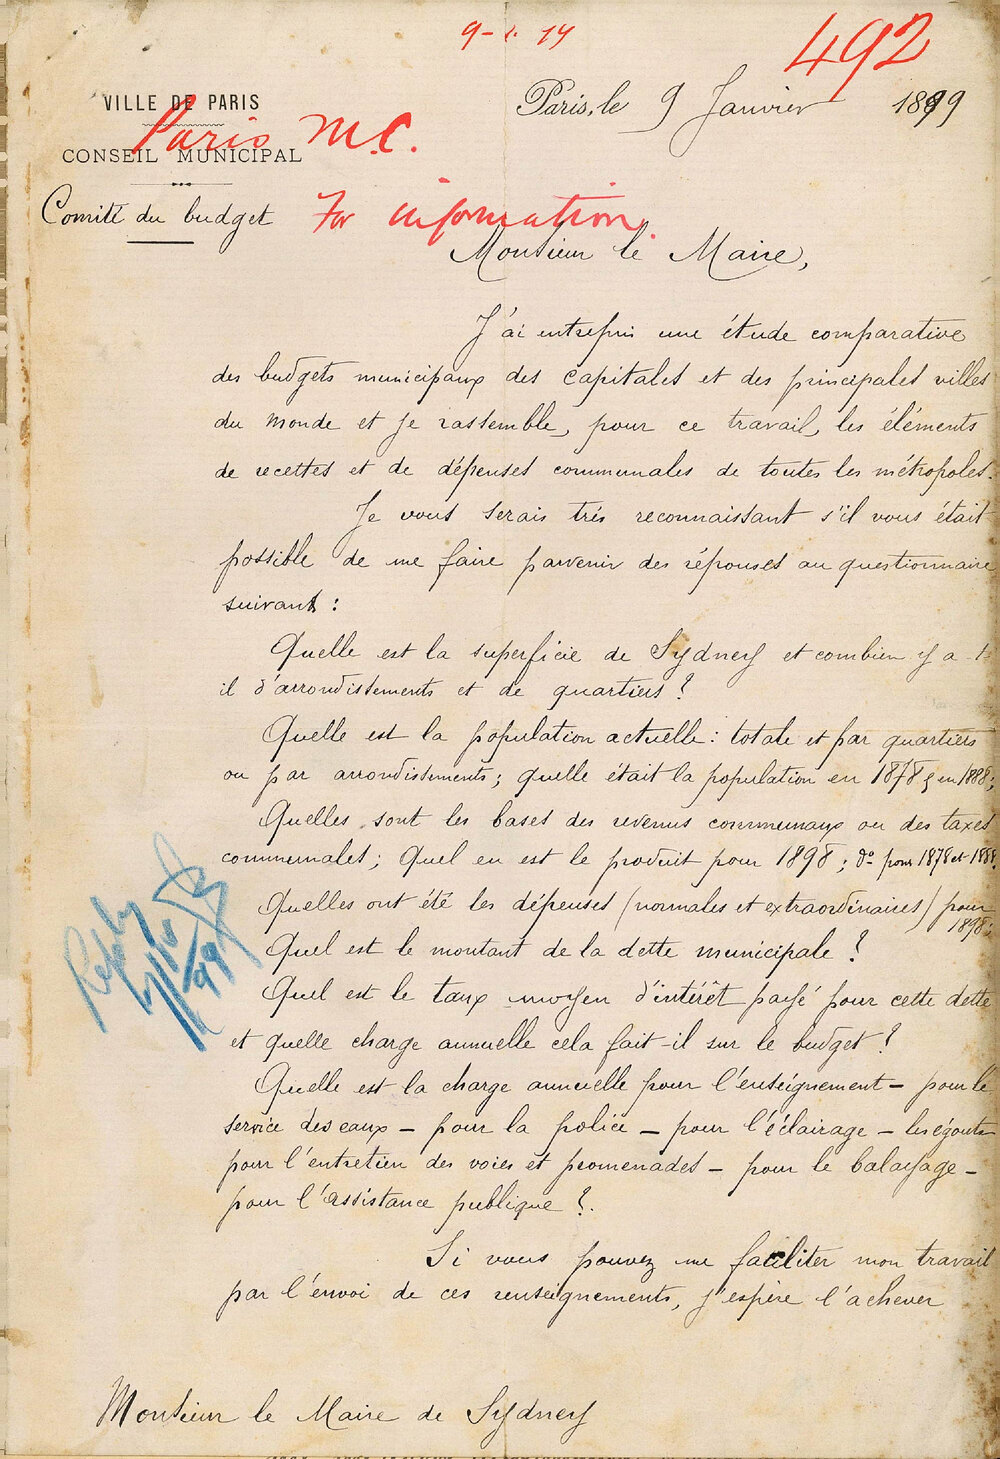 9-1.99
492
VILLE DE PARIS
Paris, le 9 Janvier 1899
Paris M.C.
CONSEIL MUNICIPAL
Comité du budget
For information.
Monsieur le Maire,
J'ai entrepris une étude comparative
des budgets municipaux des capitales et des principales villes
du monde et je rassemble, pour ce travail, les éléments
de recettes et de dépenses communales de toutes les métropoles.
Je vous serais très reconnaissant s'il vous était
possible de me faire parvenir des réponses au questionnaire
suivant :
Quelle est la superficie de Sydney et combien y a-t-
il d'arrondissements et de quartiers ?
Quelle est la population actuelle : totale et par quartiers
ou par arrondissements ; quelle était la population en 1878 & en 1888 ;
Quelles sont les bases des revenus communaux ou des taxes
communales ; Quel en est le produit pour 1898 ; do pour 1878 et 1888.
Quelles ont été les dépenses (normales et extraordinaires) pour
1898 ;
Quel est le montant de la dette municipale ?
Quel est le taux moyen d'intérêt payé pour cette dette
et quelle charge annuelle cela fait-il sur le budget ?
Quelle est la charge annuelle pour l'enseignement - pour le
service des eaux - pour la police - pour l'éclairage - les égouts
pour l'entretien des voies et promenades - pour le balayage -
pour l'assistance publique ?.
Si vous pouvez me faciliter mon travail
par l'envoi de ces renseignements, j'espère l'achever
Monsieur le Maire de Sydney